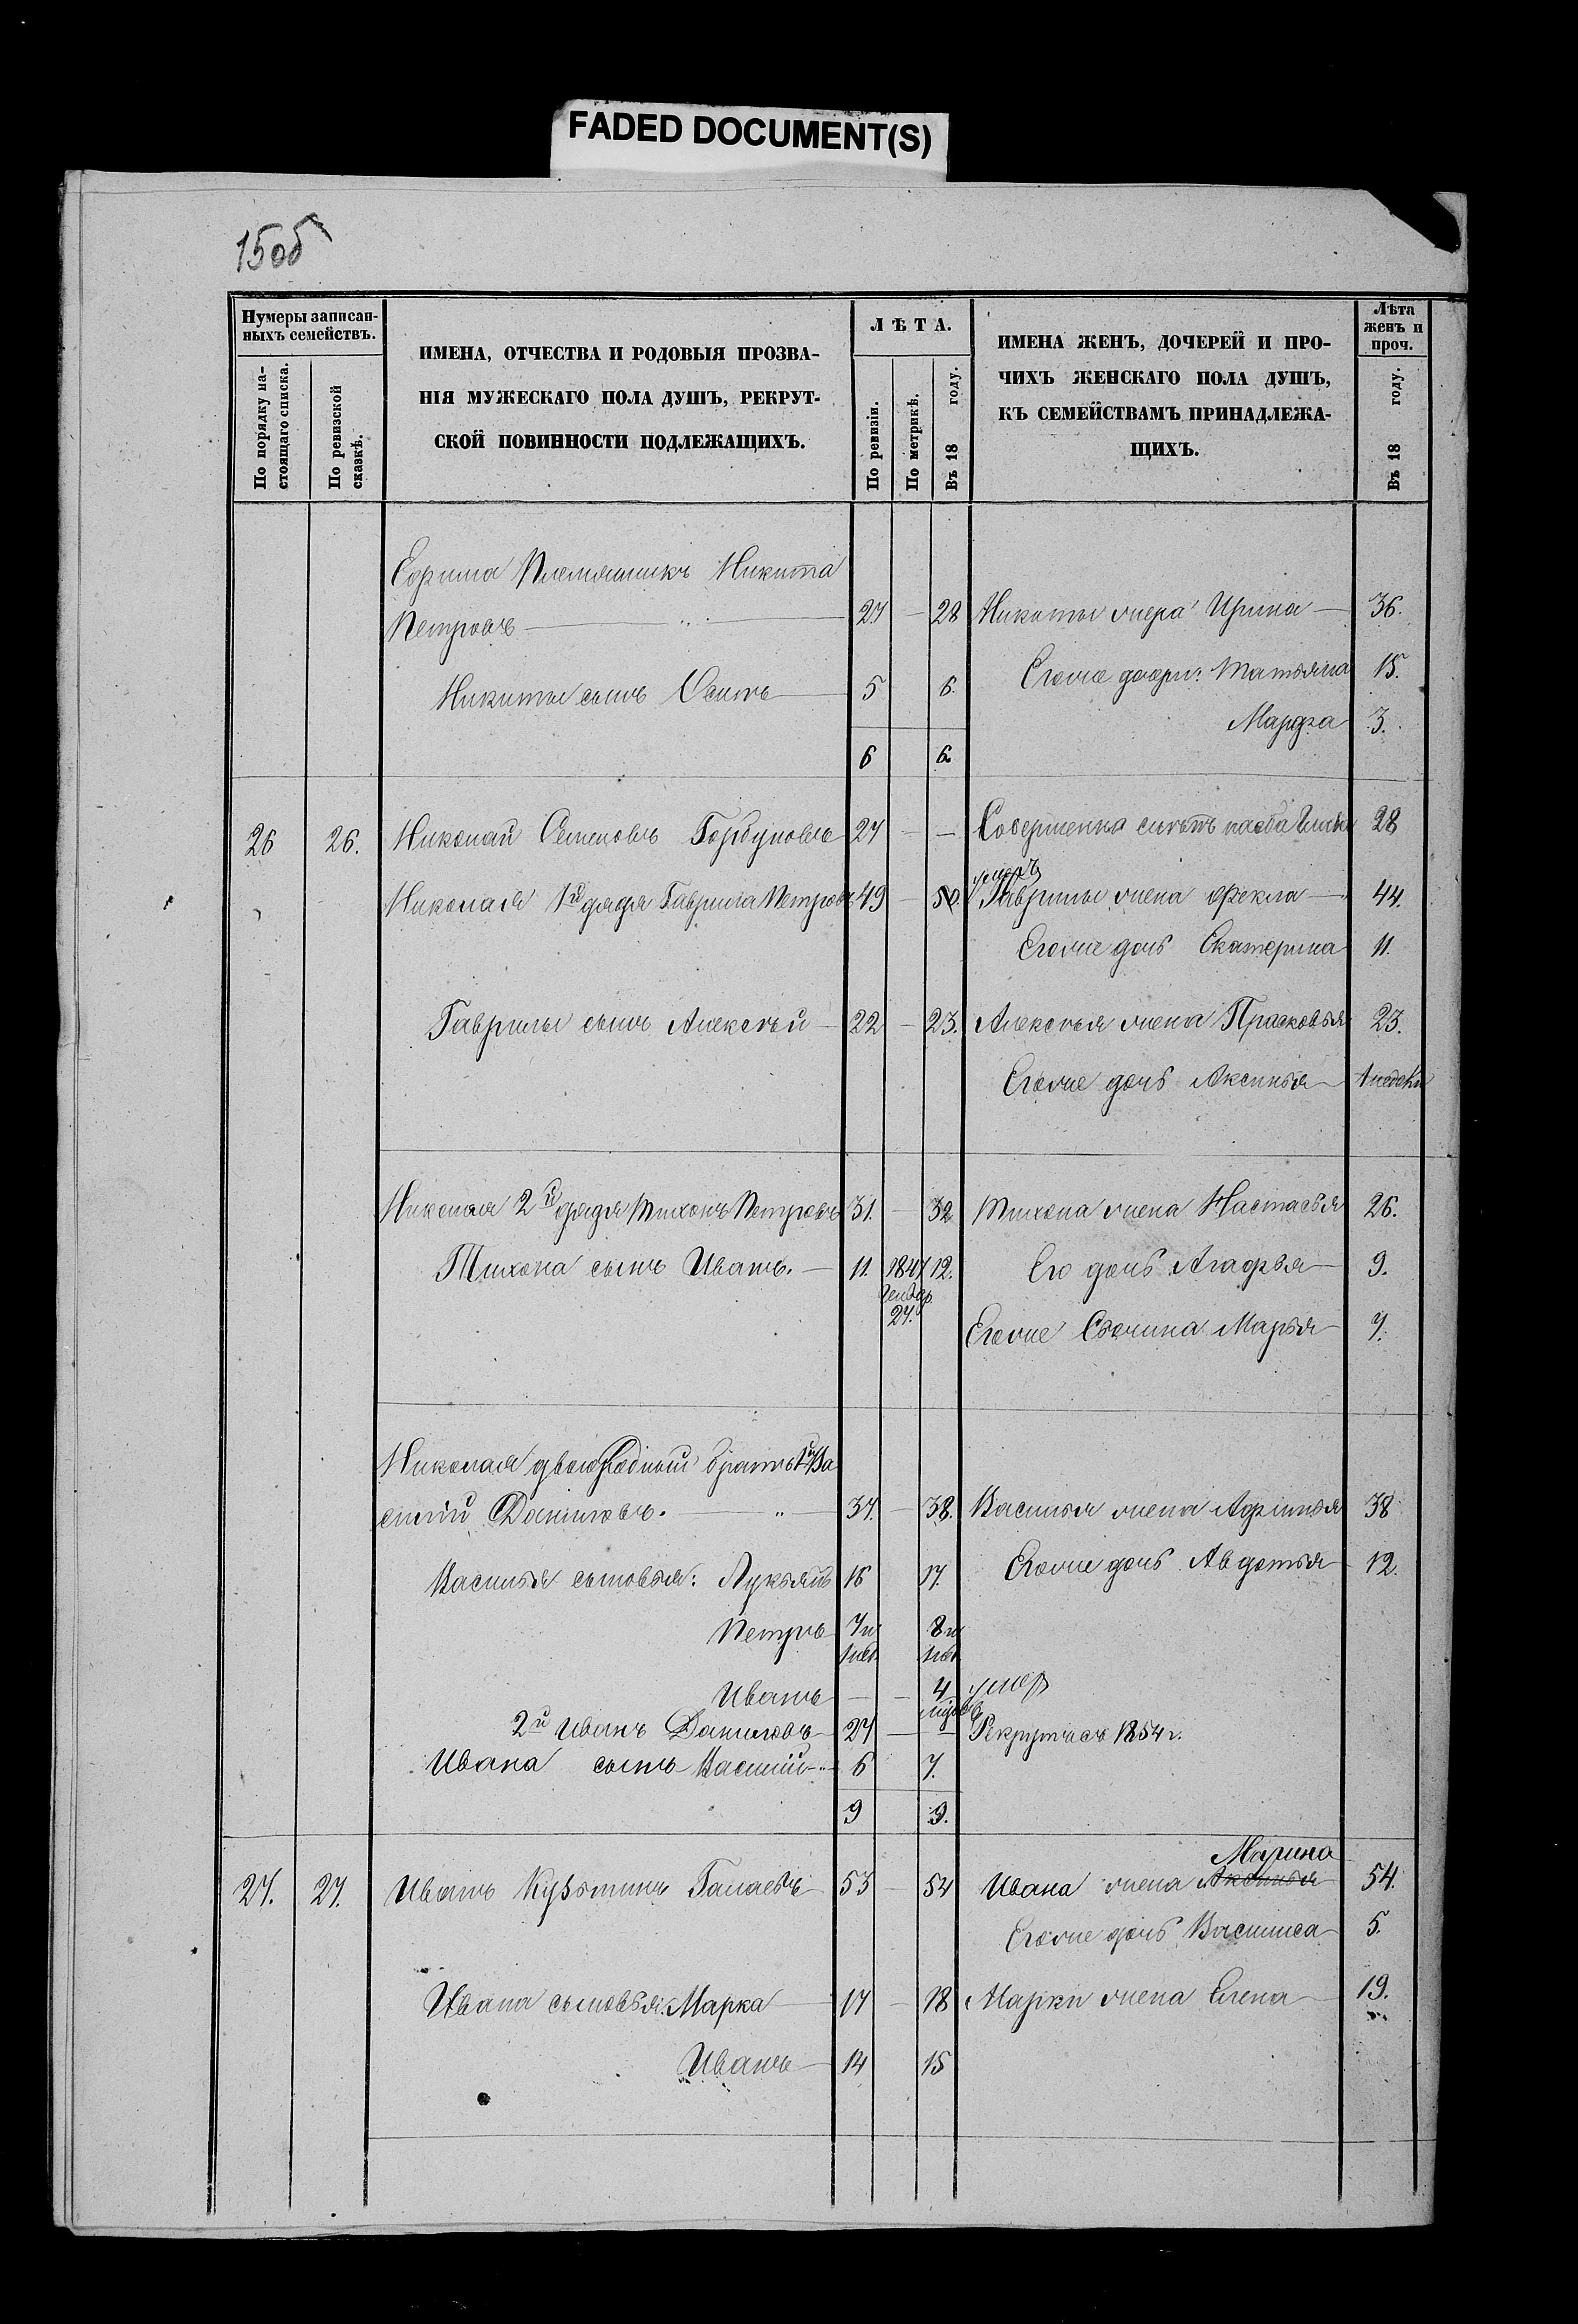 FADED DOCUMENT(S)
15об
Нумеры записан-
ныхъ семействъ.
По порядку на-
стоящаго списка.
По ревизской
сказкѣ.
ИМЕНА, ОТЧЕСТВА И РОДОВЫЯ ПРОЗВА-
НІЯ МУЖЕСКАГО ПОЛА ДУШЪ, РЕКРУТ-
СКОЙ ПОВИННОСТИ ПОДЛЕЖАЩИХЪ.
ЛѢТА.
По ревизіи.
По метрикѣ.
Въ 18 году.
ИМЕНА ЖЕНЪ, ДОЧЕРЕЙ И ПРО-
ЧИХЪ ЖЕНСКАГО ПОЛА ДУШЪ,
КЪ СЕМЕЙСТВАМЪ ПРИНАДЛЕЖА-
ЩИХЪ.
Лѣта
женъ и
проч.
Въ 18 году.
Племянникъ Никита
Петровъ 27 — 28 Никиты жена Ирина — 36.
Никиты сынъ Осипъ 5 6. Егоже дочери: Татьяна 15.
Марѳа 3.
6 6.
26 26. Николай Семеновъ Горбуновъ 27 — — Совершенно 28
умеръ
Николая 1й дядя Гаврила Петровъ 49 — 50. Гаврилы жена Ѳекла — 44.
Егоже дочь Екатерина 11.
Гаврилы сынъ Алексѣй — 22 — 23. Алексѣя жена Прасковья 23.
Егоже дочь Аксинья
Николая 2й дядя Тихонъ Петровъ 31. — 32 Тихона жена Настасья 26.
Тихона сынъ Иванъ. — 11. 1847 12. Его дочь Агафья 9.
27.
Егоже Марья 7.
Николая двоюродный братъ 1й Ва
силій Даниловъ. 37. — 38. Василья жена 38
Василья сыновья: Лукьянъ 16 17. Егоже дочь Авдотья 12.
Петръ 7 8
Иванъ — — 4 умеръ
2й Иванъ Даниловъ 27 — — Рекрутъ съ 1854 г.
Ивана сынъ Василій 6 7.
9 9.
Марина
27. 27. Иванъ Кузьминъ Галаевъ 53 — 54 Ивана жена Аксинья 54.
Егоже дочь Василиса 5.
Ивана сыновья: Марка 17 — 18 Марки жена Елена 19.
Иванъ 14 15